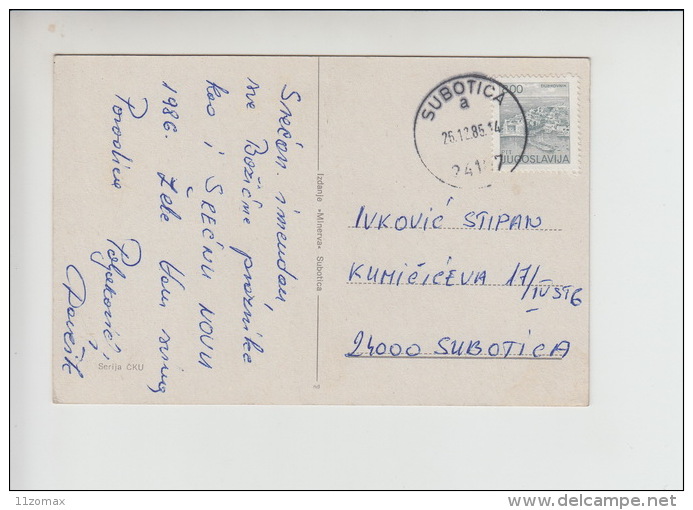 Srećan imendan,
sve Božićne praznike
kao i SREĆNU NOVU
1986. Žele Vam svima
Porodica
Serija ČKU
Izdanje »Minerva« Subotica
SUBOTICA
a
26.12.85.14
DUBROVNIK
JUGOSLAVIJA
IVKOVIĆ STIPAN
KUMIČIĆEVA 17/
IV ST 6
24000 SUBOTICA
11zomax
delcampe.net